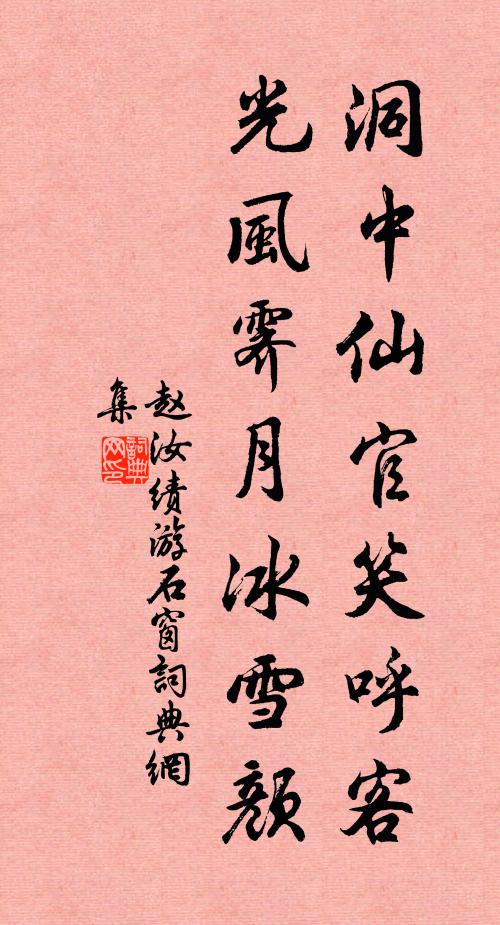 洞中仙官笑呼客
光風霽月冰雪顏
赵汝績游石窗詞典網
集
詞典網印